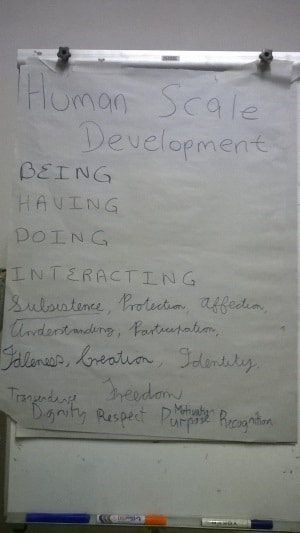 Human Scale
Development
BEING
HAVING
DOING
INTERACTING
Subsistence, Protection, Affection,
Understanding, Participation,
Idleness, Creation, Identity,
Freedom
Dignity Respect Purpose Motivation Recognition